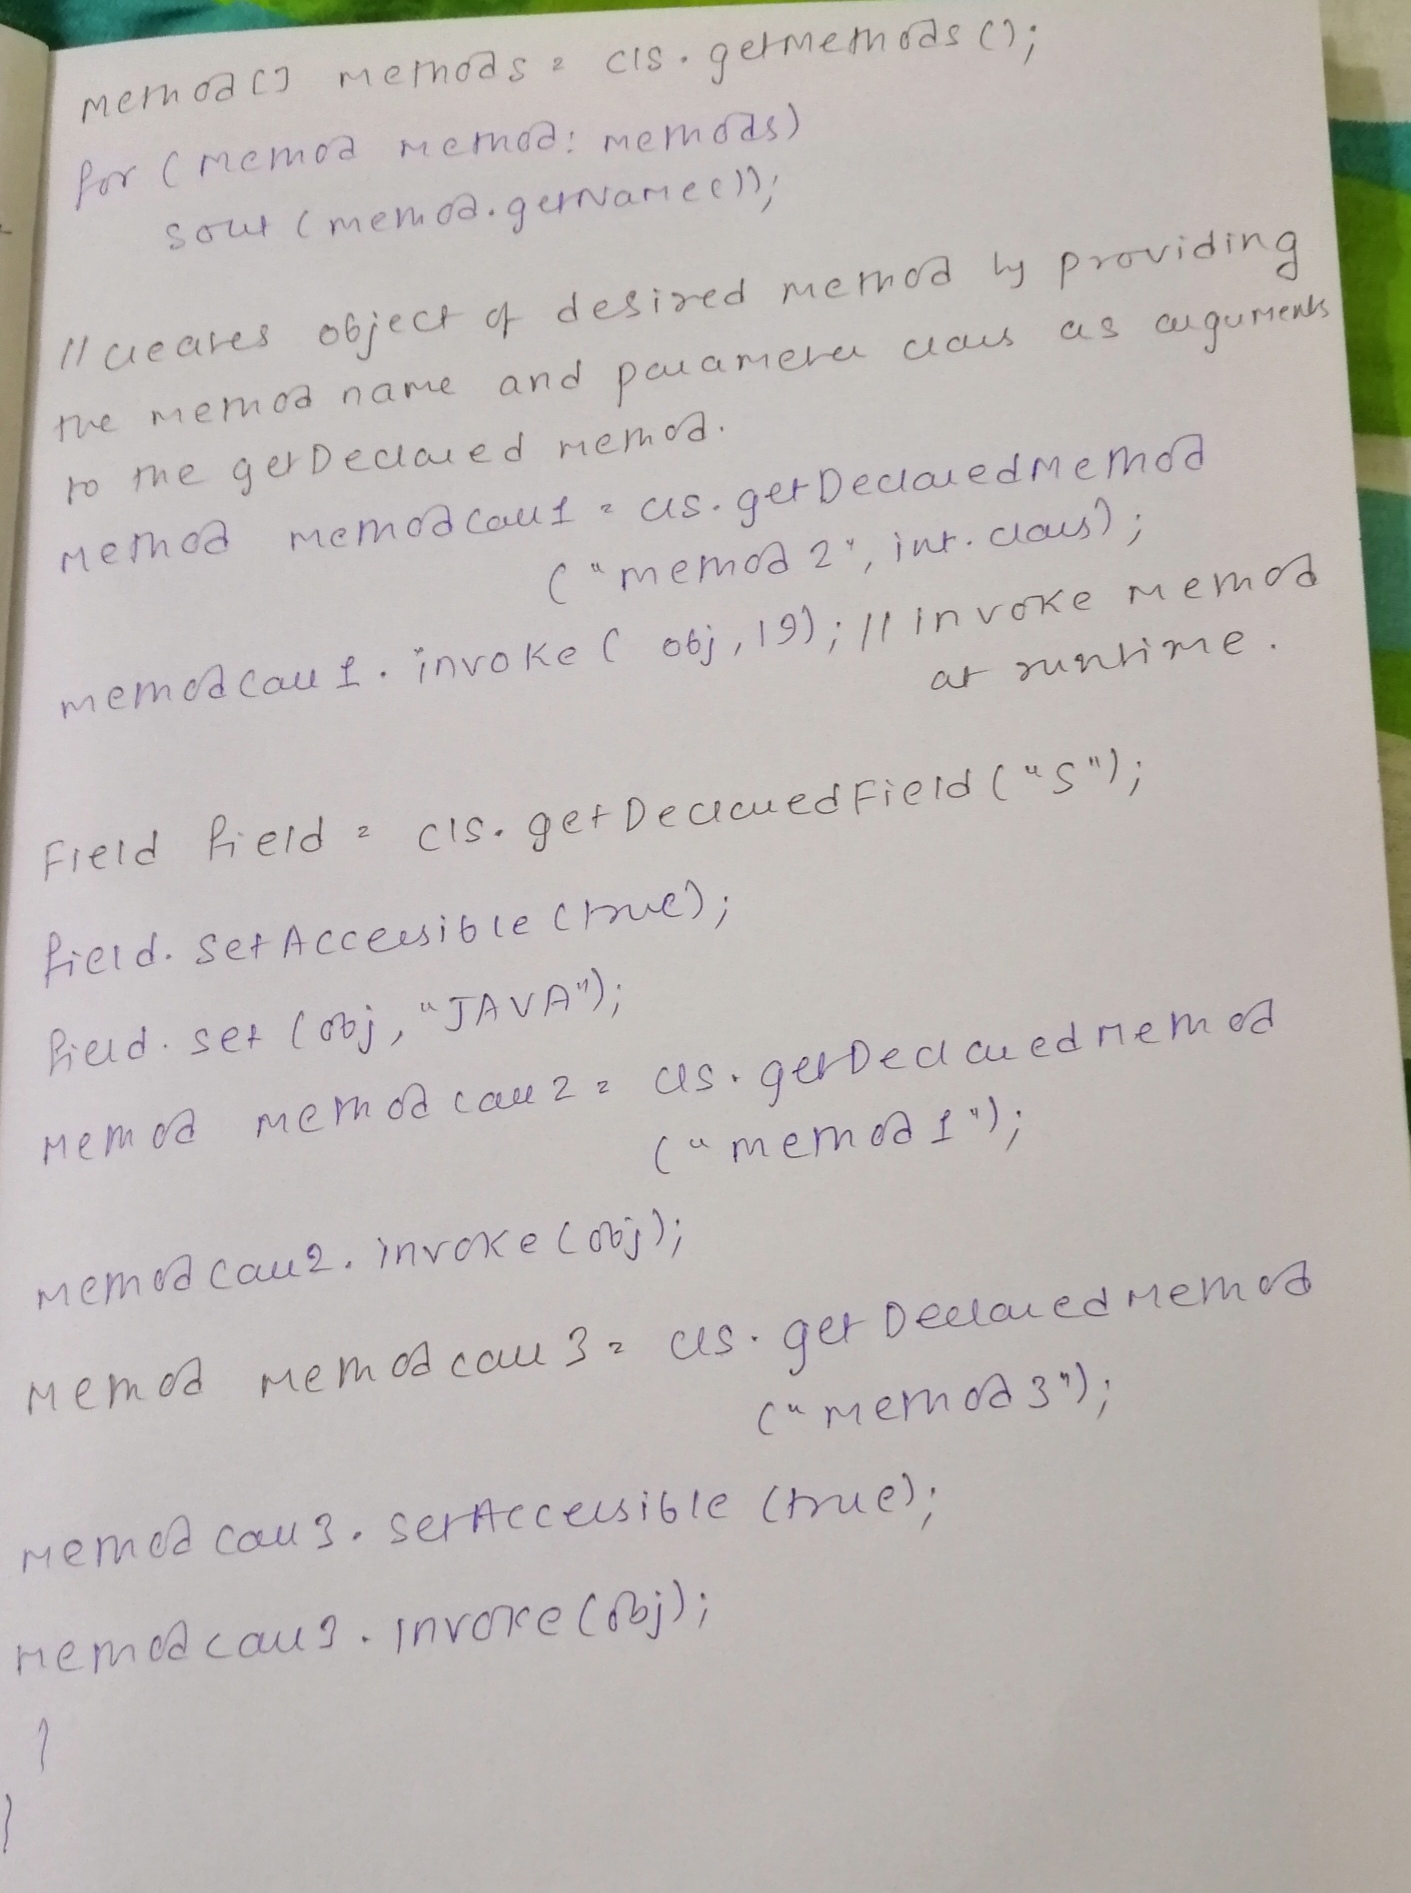 Method[] methods = cls.getMethods();
for (Method method: methods)
sout (method.getName());
// creates object of desired method by providing
the method name and parameter class as arguments
to the getDeclared method.
Method methodcall1 = cls.getDeclaredMethod
("method2", int.class);
methodcall1.invoke( obj, 19); // invoke method
at runtime.
Field field = cls.getDeclaredField("S");
field.setAccessible(true);
field.set (obj, "JAVA");
Method methodcall2 = cls.getDeclaredMethod
("method1");
methodcall2.invoke(obj);
Method methodcall3 = cls.getDeclaredMethod
("method3");
methodcall3.setAccessible (true);
methodcall3.invoke(obj);
}
}